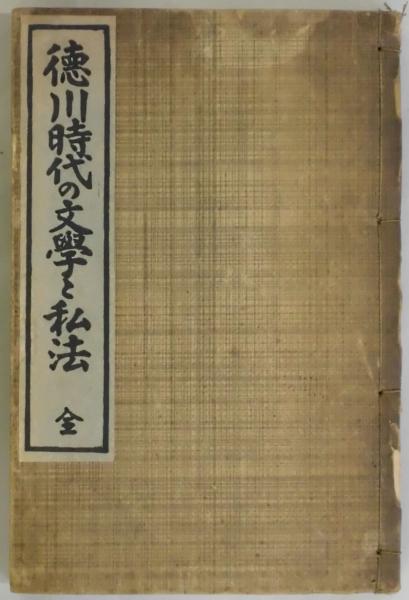 德川時代の文學と私法
全